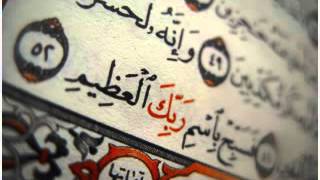 مُّكَذِّبِينَ ٤٩ وَإِنَّهُۥ لَحَسْرَ
٥١ فَسَبِّحْ بِٱسْمِ رَبِّكَ ٱلْعَظِيمِ ٥٢